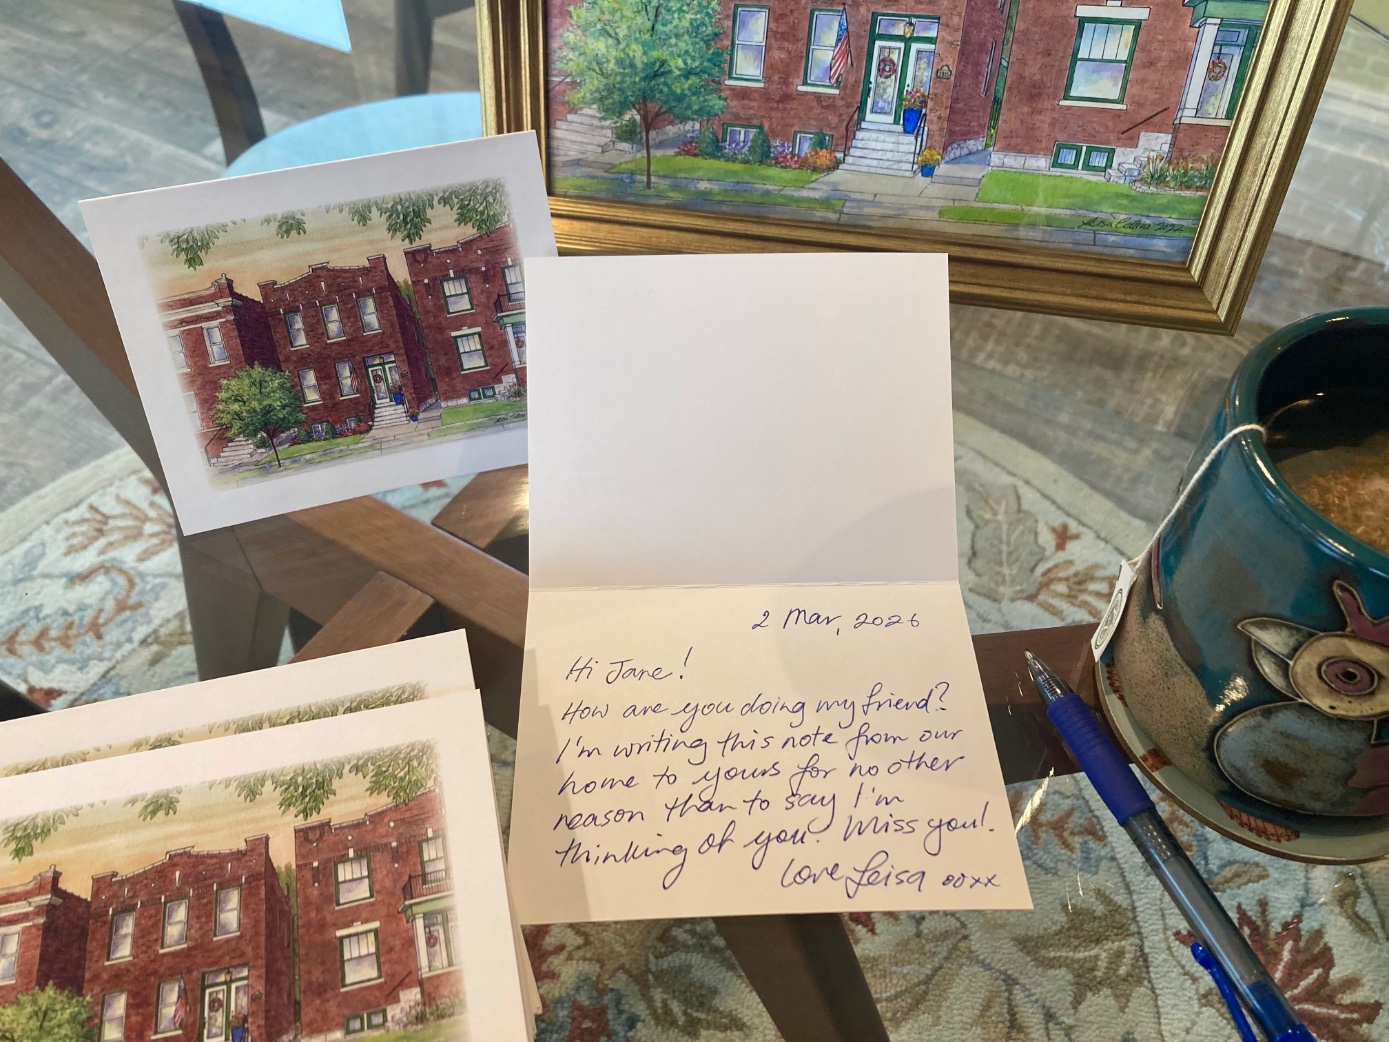 2 Mar, 2026
Hi Jane!
How are you doing my friend?
I'm writing this note from our
home to yours for no other
reason than to say I'm
thinking of you. Miss you!
Love Leisa ooxx
2022